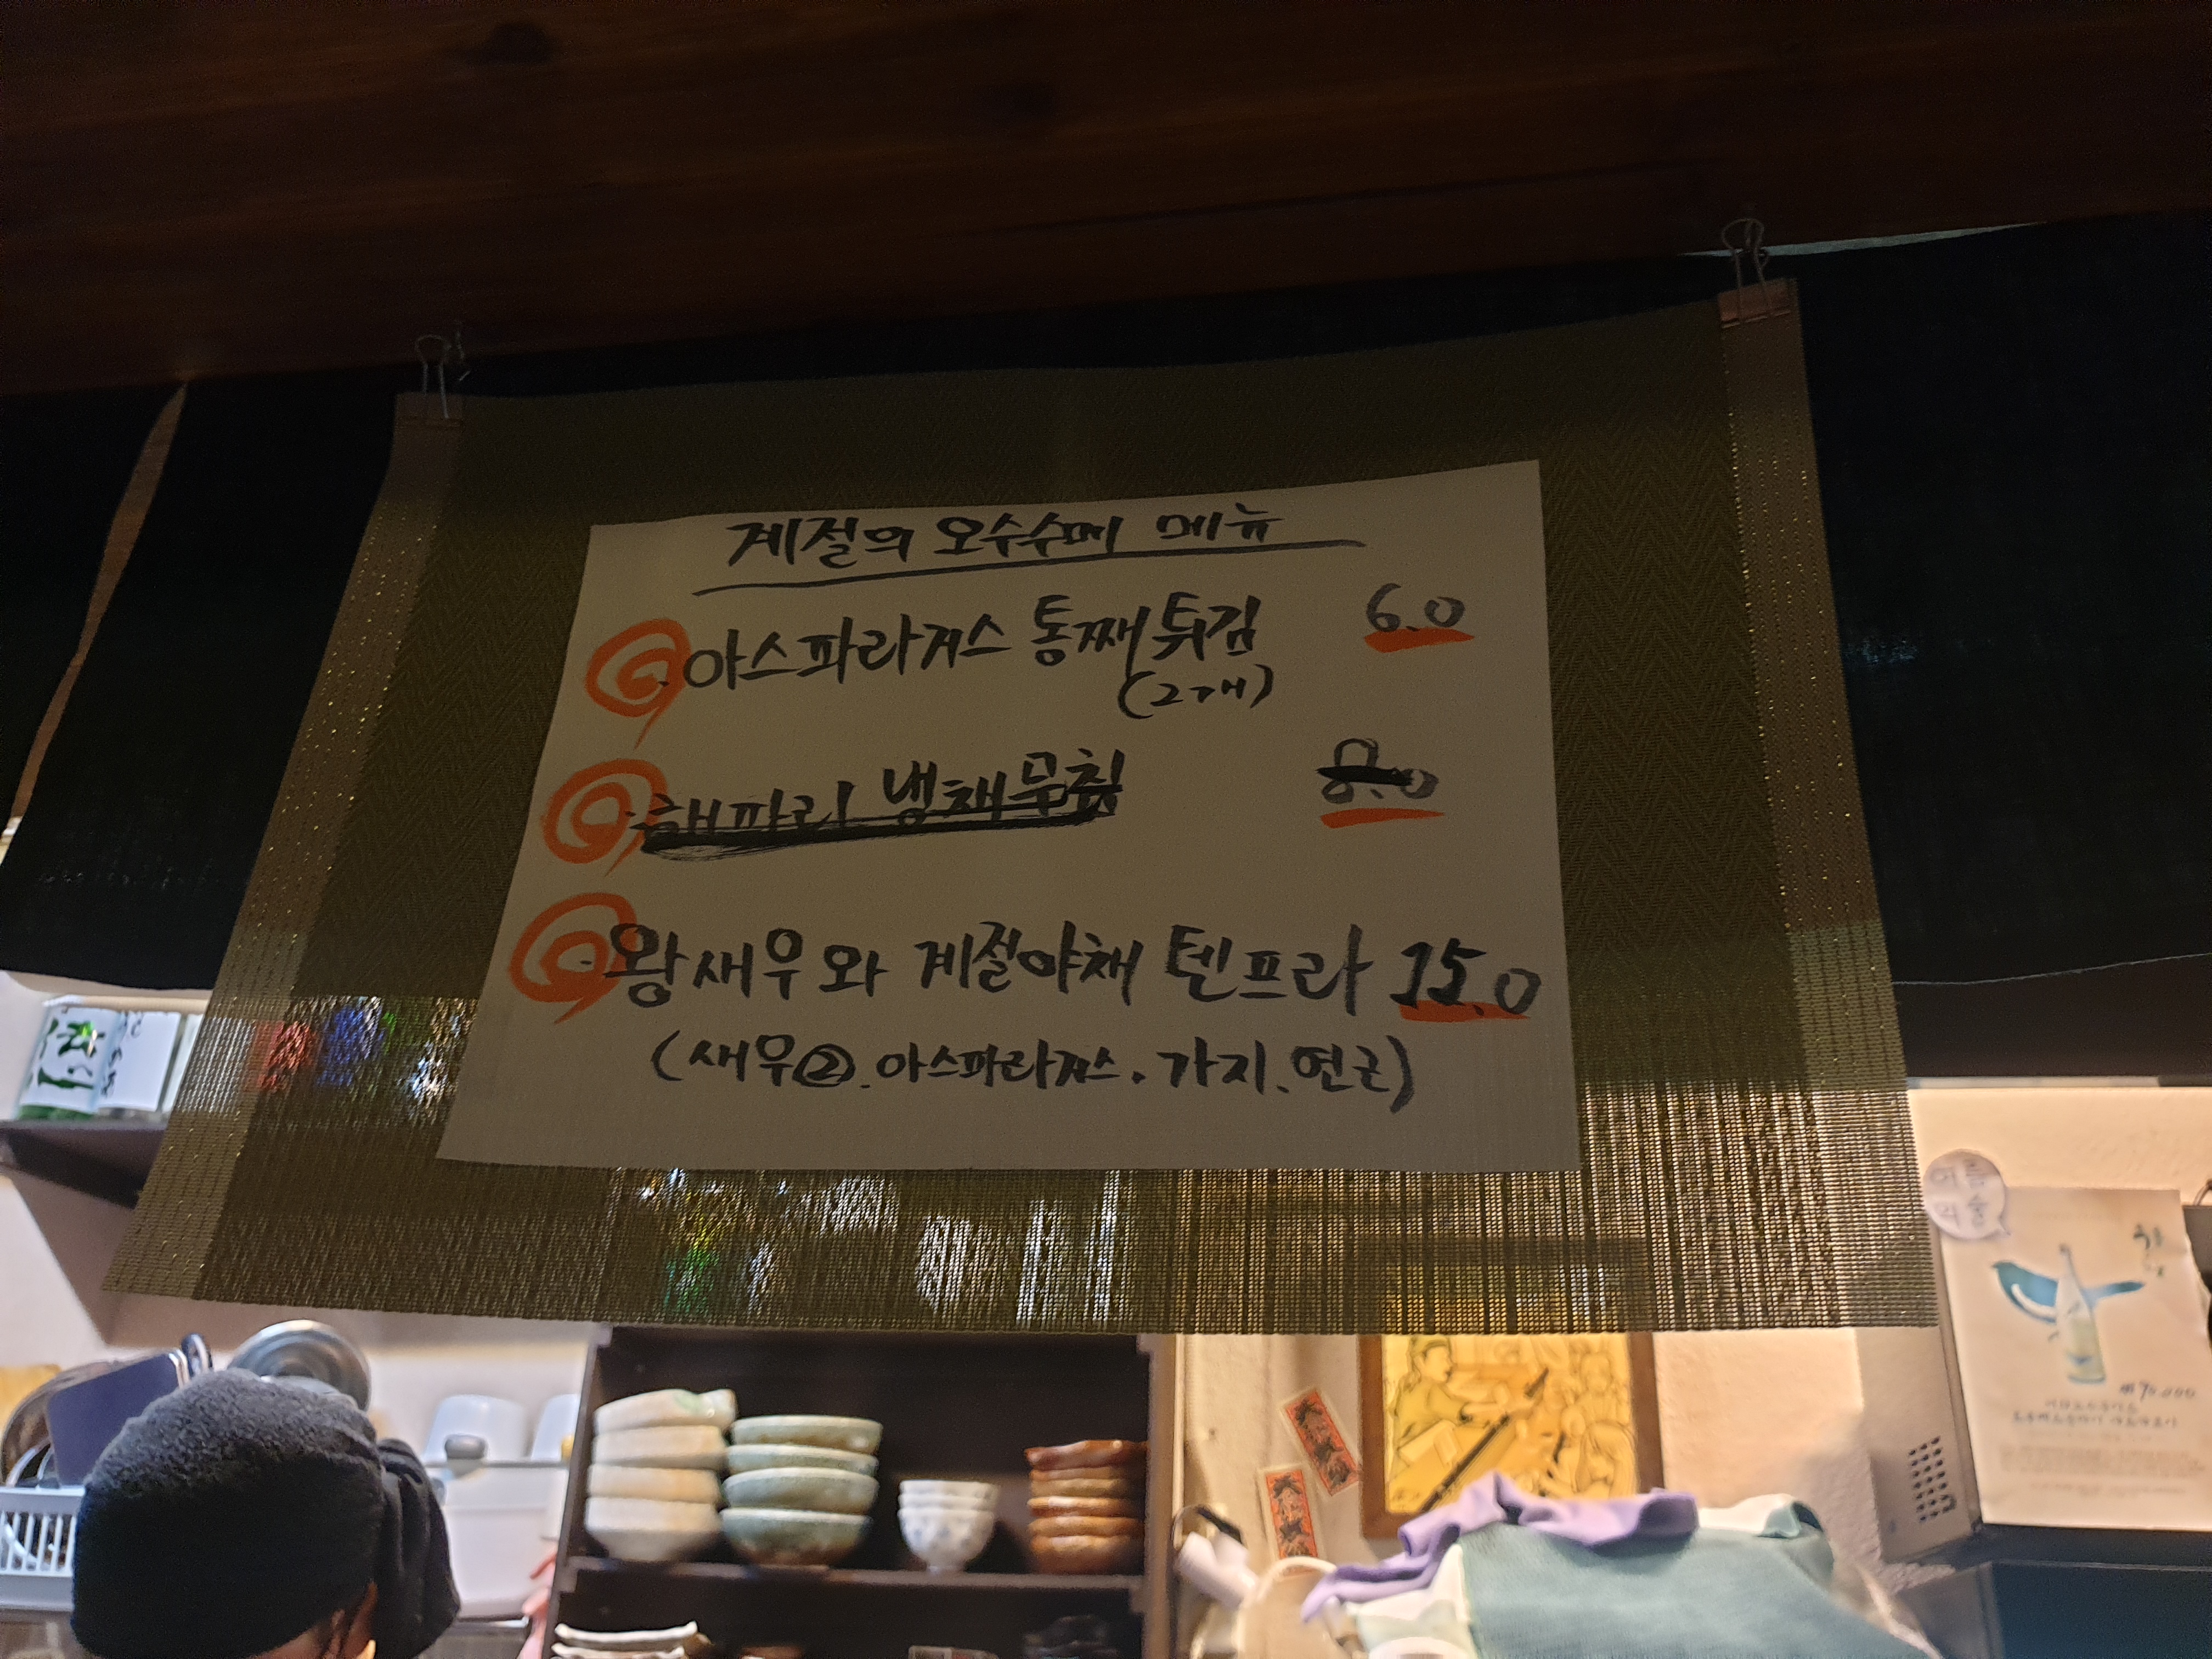 계절의 오수수메 메뉴
·아스파라거스 통째튀김 6.0
(2개)
·해파리 냉채무침 8.0
·왕새우와 계절야채 텐프라 15.0
(새우②.아스파라거스.가지.연근)
여름
의술
₩90.000